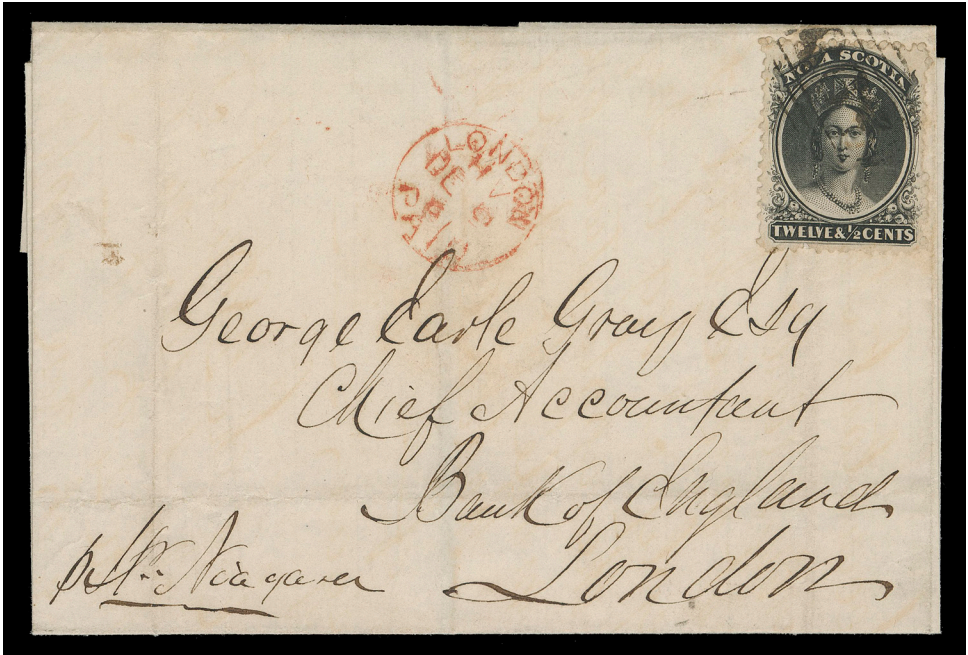 NOVA SCOTIA
TWELVE & ½ CENTS
LONDON
PAID
DE
George Earle Gray Esq
Chief Accountant
Bank of England
London
pr Str. Niagara